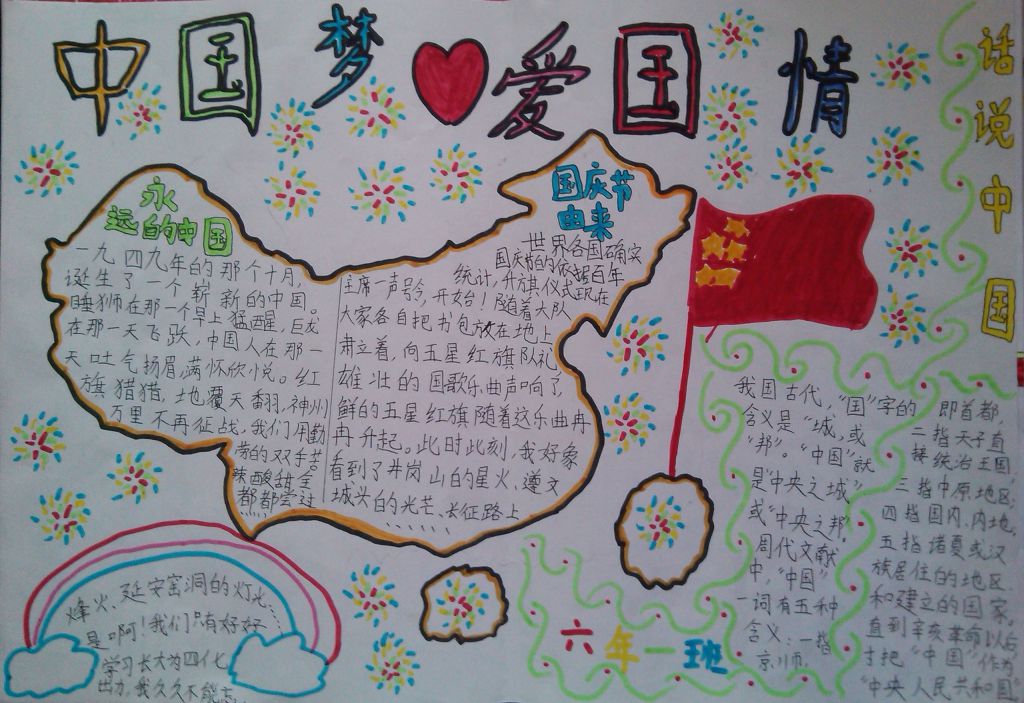 中国梦 爱国情
永
远的中国
一九四九年的那个十月,
诞生了一个崭新的中国。
睡狮在那一个早上猛醒,巨龙
在那一天飞跃,中国人在那一
天吐气扬眉,满怀欣悦。红
旗猎猎,地覆天翻,神州
万里不再征战,我们用勤
劳的双手
酸甜
都都尝过
国庆节
由来
世界各国确实
国庆节的依据百年
统计,升旗仪式现在
主席一声号令,开始!随着大队
大家各自把书包放在地上
肃立着,向五星红旗队礼,
雄壮的国歌乐曲声响了,
鲜的五星红旗随着这乐曲冉
冉升起。此时此刻,我好象
看到了井岗山的星火、遵文
城头的光芒、长征路上
......
烽火、延安窑洞的灯光......
是啊!我们只有好好
学习长大为四化
出力,我久久不能忘
六年一班
话说中国
我国古代,“国”字的
含义是“城,或
“邦”。“中国”就
是“中央之城”
或“中央之邦”
周代文献
中,“中国”
一词有五种
含义:一指
京师,
即首都,
二指天子直
接统治王国,
三指中原地区,
四指国内、内地,
五指诸夏或汉
族居住的地区
和建立的国家。
直到辛亥革命以后
才把“中国”作为
“中央人民共和国”